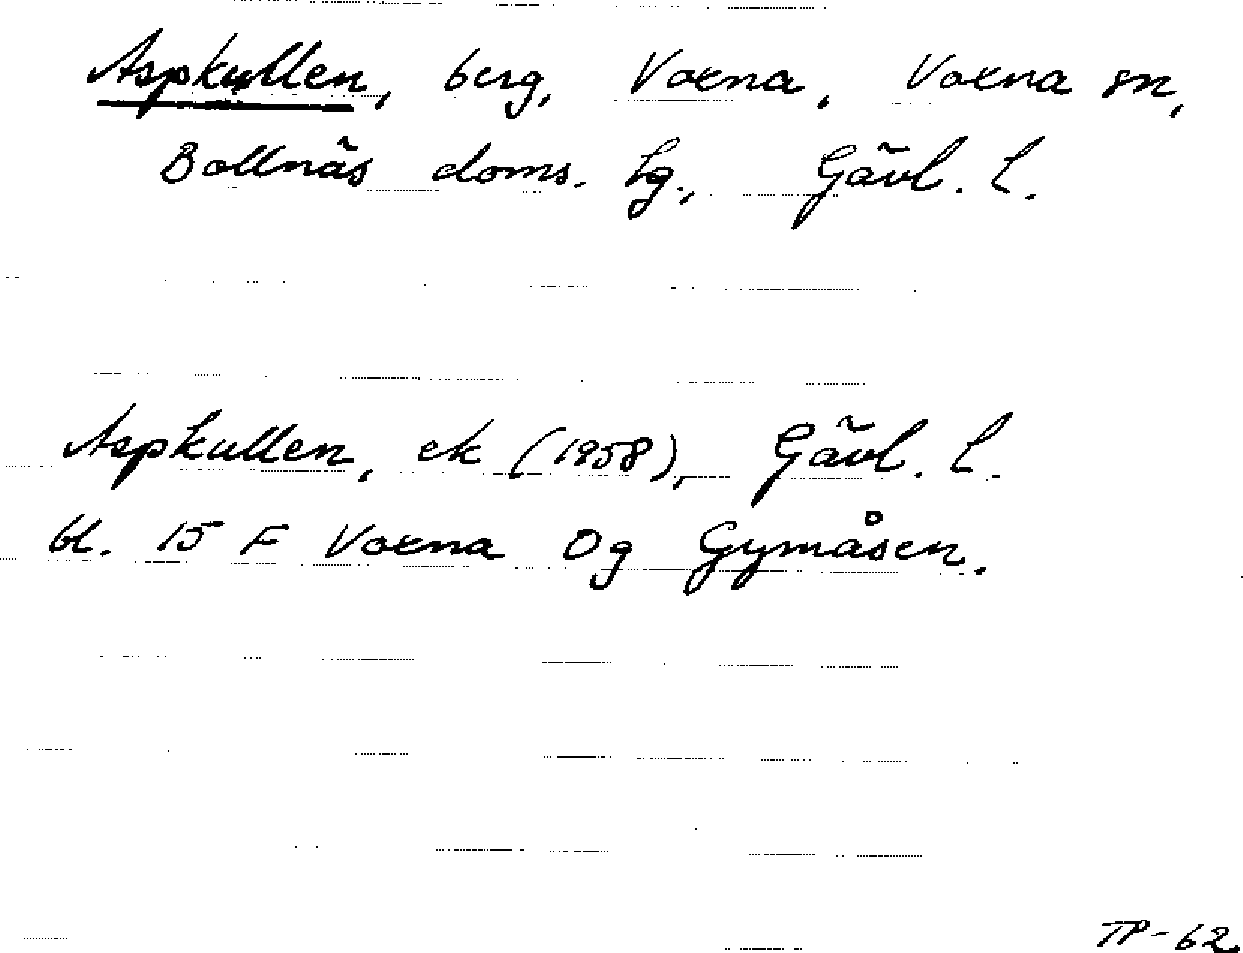 Aspkullen, berg, Voxna, Voxna sn,
Bollnäs doms. hg., Gävl. l.
Aspkullen, ek (1958), Gävl. l.
bl. 15 F Voxna 0g Gymåsen.
TP-62